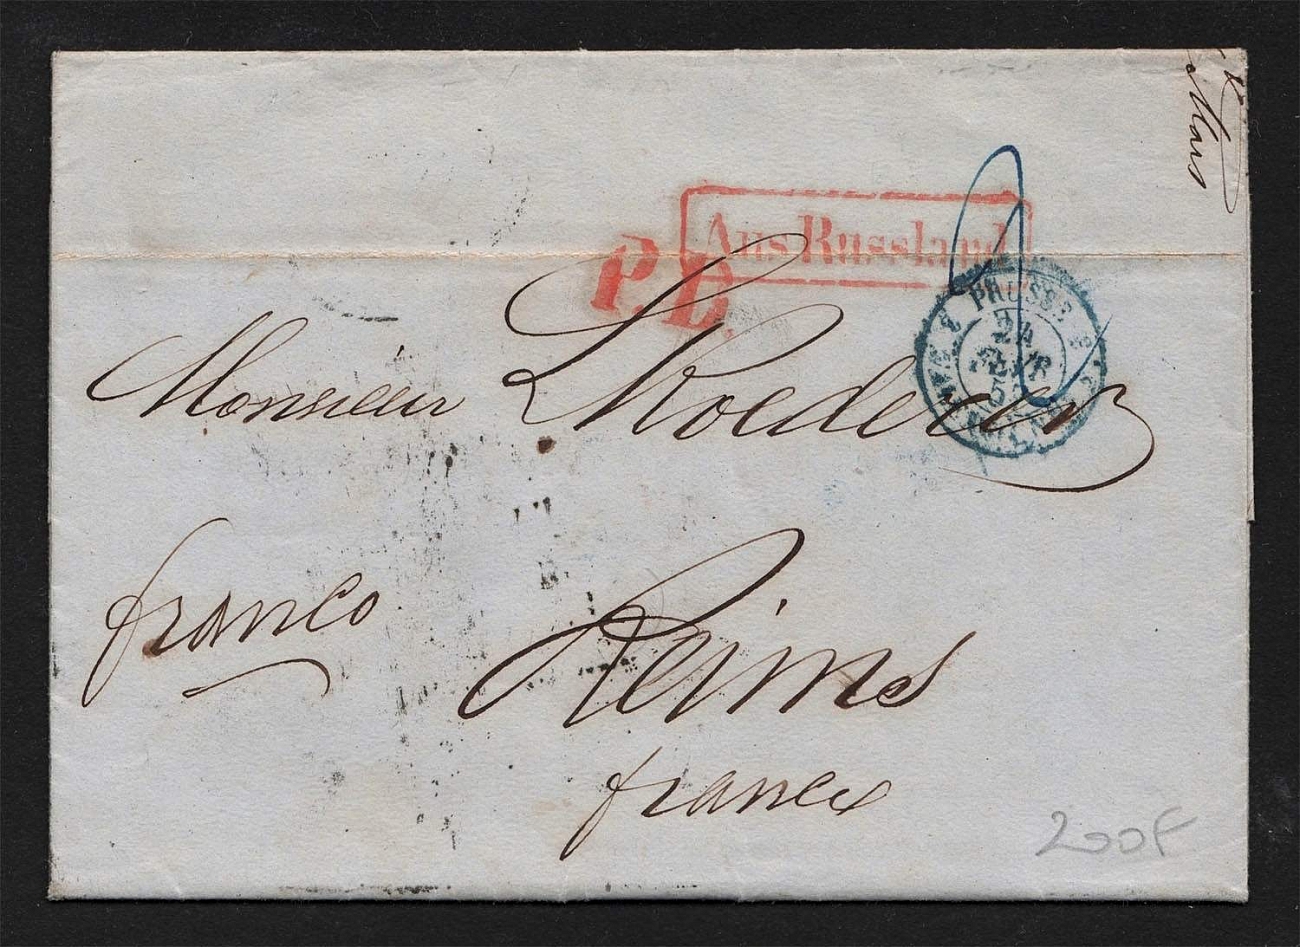 Mars
Aus Russland
P.D.
PRUSSE 3
24
FEVR
Monsieur L Roederer
franco
Reims
france
200F